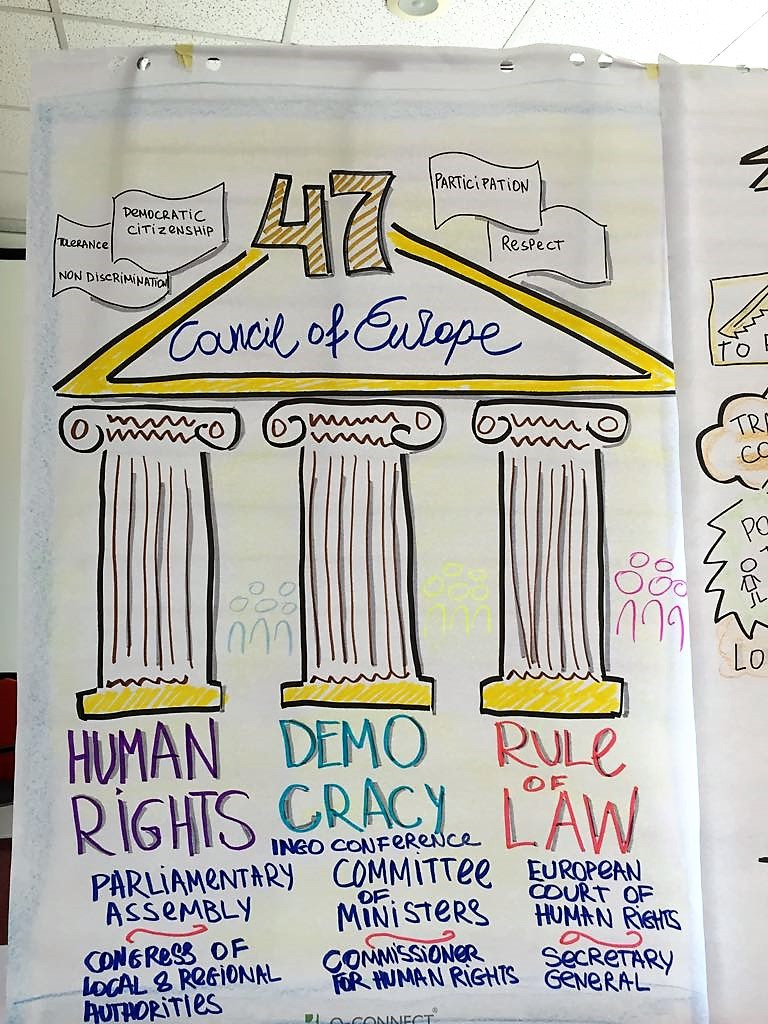 47
DEMOCRATIC
CITIZENSHIP
TOLERANCE
NON DISCRIMINATION
PARTICIPATION
RESPECT
Council of Europe
HUMAN
RIGHTS
DEMO
CRACY
RULE
OF
LAW
INGO CONFERENCE
PARLIAMENTARY
ASSEMBLY
COMMITTEE
OF
MINISTERS
EUROPEAN
COURT OF
HUMAN RIGHTS
CONGRESS OF
LOCAL & REGIONAL
AUTHORITIES
COMMISSIONER
FOR HUMAN RIGHTS
SECRETARY
GENERAL
TO